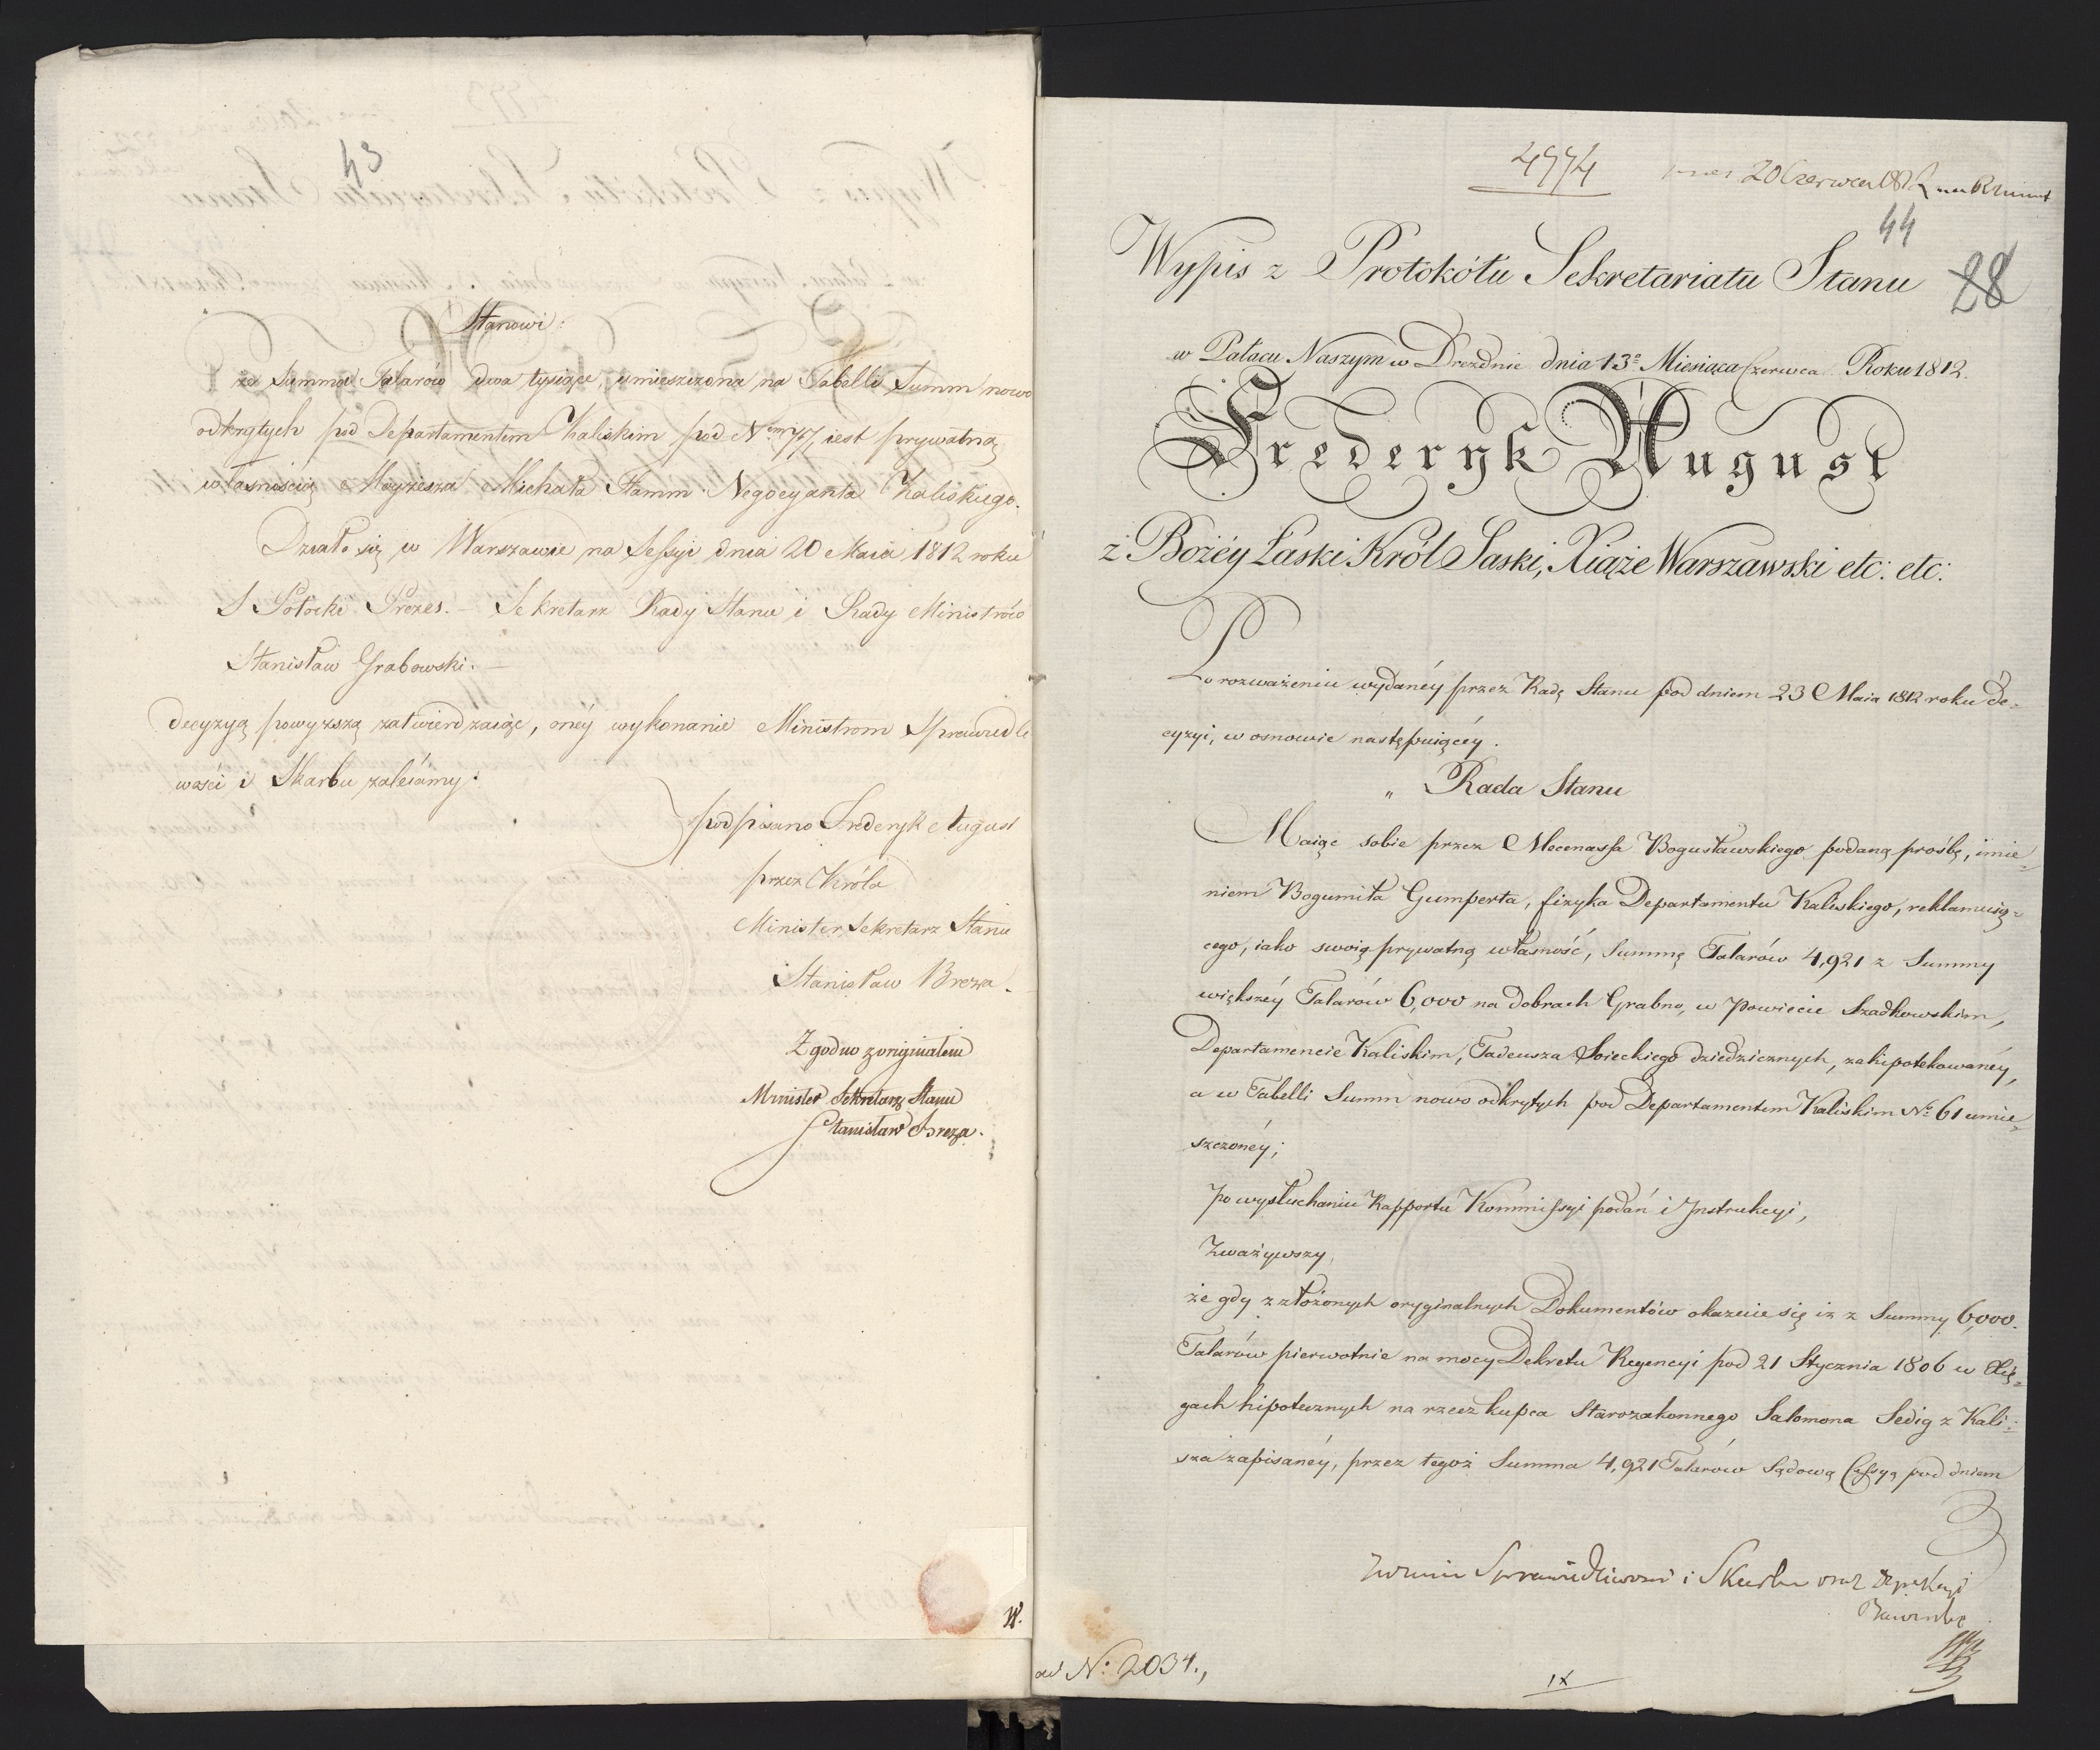 43
Stanowi:
że Summa Talarów dwa tysiące, umieszczona na Tabelli Summ nowo
odkrytych pod Departamentem Kaliskim pod Nem 77, iest prywatną
własnością Moyżesza Michała Hamm Negocyanta Kaliskiego.
Działo się w Warszawie na Sessyi dnia 20 Maia 1812 roku
S Potocki Prezes. — Sekretarz Rady Stanu i Rady Ministrów
Stanisław Grabowski. —
Decyzyą powyższą zatwierdzaiąc, onéy wykonanie Ministrom Sprawiedli
wości i Skarbu zalecámy.
podpisano Frederyk August
przez Króla
Minister Sekretarz Stanu
Stanisław Breza.
Zgodno z originałem
Minister Sekretarz Stanu
Stanisław Breza.
4994
20 Czerwca 1812
44
28
Wypis z Protokółu Sekretariatu Stanu
w Pałacu Naszym w Dreznie dnia 13o Miesiąca Czerwca Roku 1812.
Frederyk August
z Bożéy Łaski Król Saski, Xiąże Warszawski etc: etc:
Po rozważeniu wydanéy przez Radę Stanu pod dniem 23 Maia 1812 roku de=
cyzyi, w osnowie następuiącéy.
„ Rada Stanu
Maiąc sobie przez Mecenassa Bogusławskiego podaną prośbę, imie=
niem Bogumiła Gumperta, fizyka Departamentu Kaliskiego, reklamuią=
cego, iako swoią prywatną własność, Summę Talarów 4,921 z Summy
większéy Talarów 6,000 na dobrach Grabno, w Powiecie Szadkowskim,
Departamencie Kaliskim, Tadeusza Soieckiego dziedzicznych, zahipotekowanéy,
a w Tabelli Summ nowo odkrytych pod Departamentem Kaliskim No 61 umie=
szczonéy;
po wysłuchaniu Rapportu Kommissyi podań i Instrukcyi,
Zważywszy,
że gdy z złożonych oryginalnych Dokumentów okazuie się iż z Summy 6,000.
Talarów pierwotnie na mocy Dekretu Regencyi pod 21 Stycznia 1806 w Xię=
gach hipotecznych na rzecz kupca Starozakonnego Salomona Sedig z Kali=
sza zapisanéy, przez tegoż Summa 4,921 Talarów Sądową Cessyą pod dniem
Sprawiedliwości i Skarbu oraz
ad No: 2034.,
IX